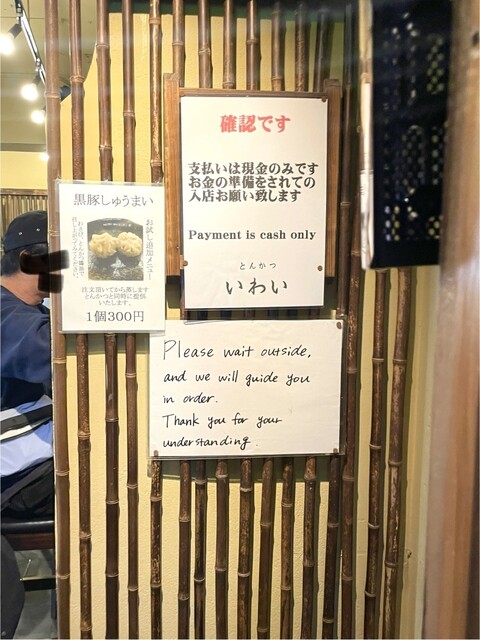 確認です
支払いは現金のみです
お金の準備をされての
入店お願い致します
Payment is cash only
とんかつ
いわい
黒豚しゅうまい
お試し追加メニュー
注文頂いてから蒸します
とんかつと同時に提供
いたします。
1個300円
Please wait outside,
and we will guide you
in order.
Thank you for your
understanding.